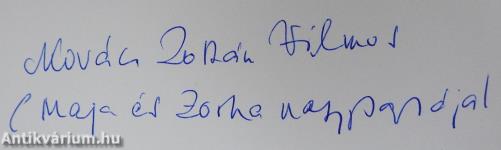 Kovács Zoltán Vilmos
(Maja és Zorka nagypapája)
Antikvárium.hu